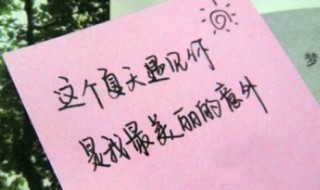 这个夏天遇见你
是我最美丽的意外
梦